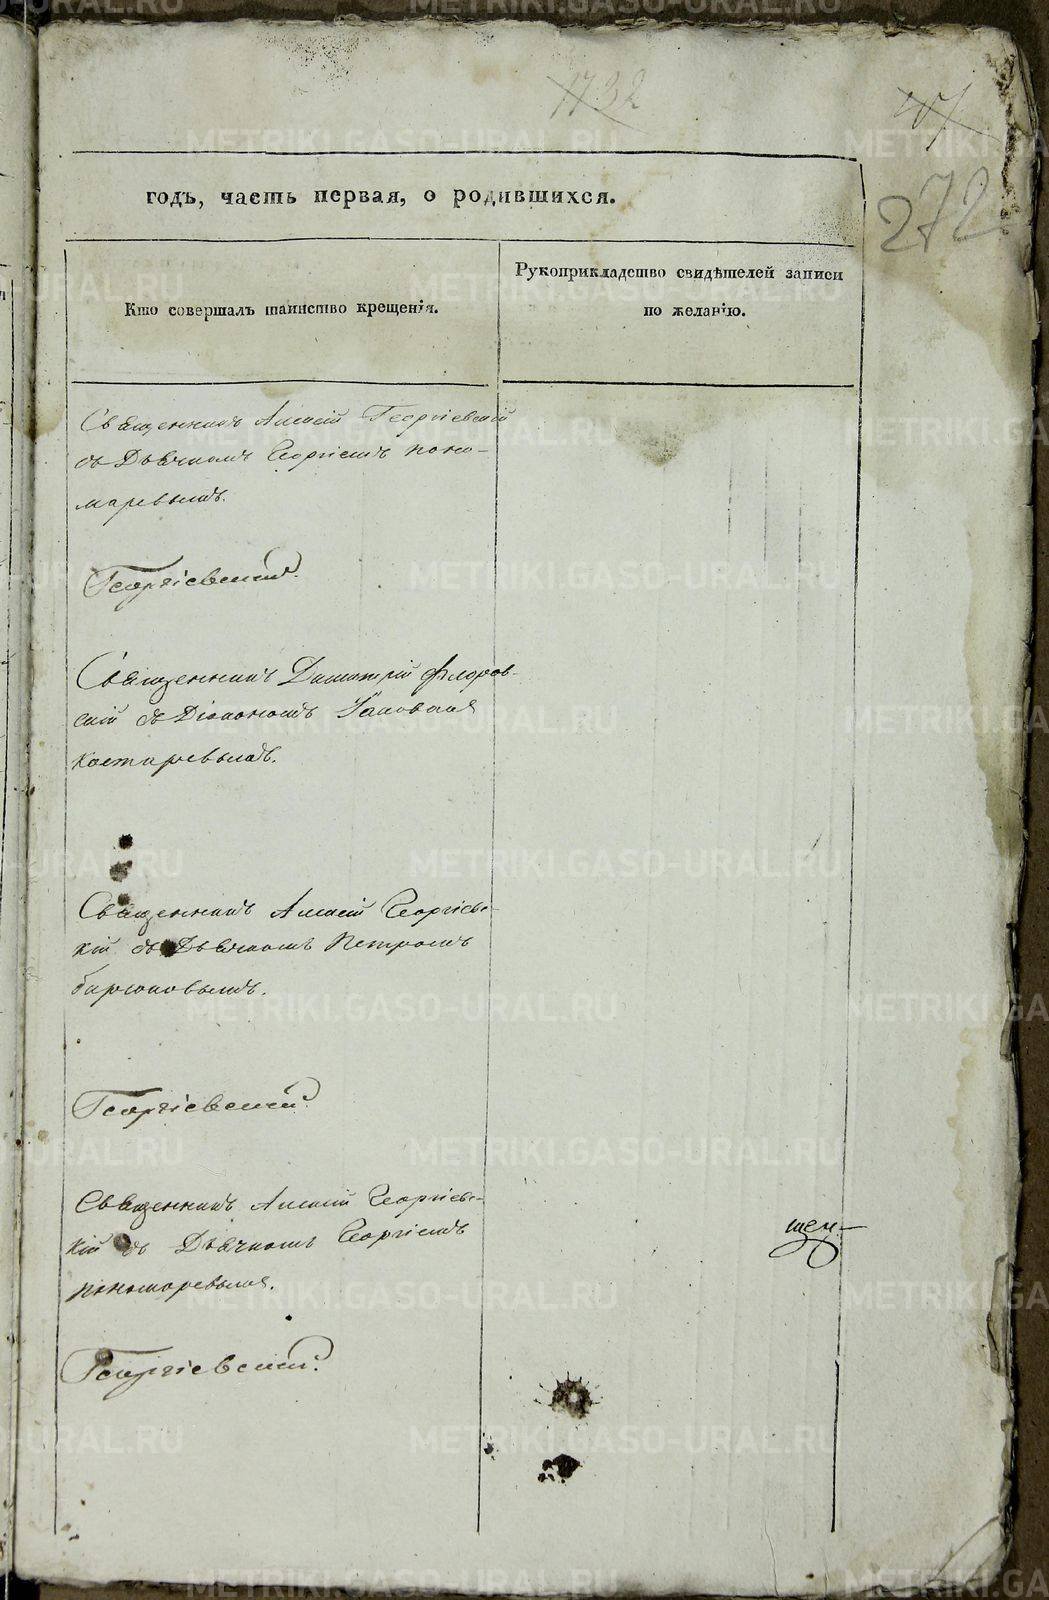 1732
272
годъ, часть первая, о родившихся.
Кто совершалъ таинство крещенія.
Рукоприкладство свидѣтелей записи
по желанію.
Священникъ Алексій Георгіевскій
съ Дьячкомъ Георгіемъ Поно-
маревымъ.
Георгіевскій.
Священникъ Димитрій Флоров-
скій съ Діакономъ Іаковомъ
Костаревымъ.
Священникъ Алексій Георгіевс-
кій съ Дьячкомъ Петромъ
Бирюковымъ.
Георгіевскій.
Священникъ Алексій Георгіевс-
кій съ Дьячкомъ Георгіемъ
Пономаревымъ.
Георгіевскій.
щен-
METRIKI.GASO-URAL.RU